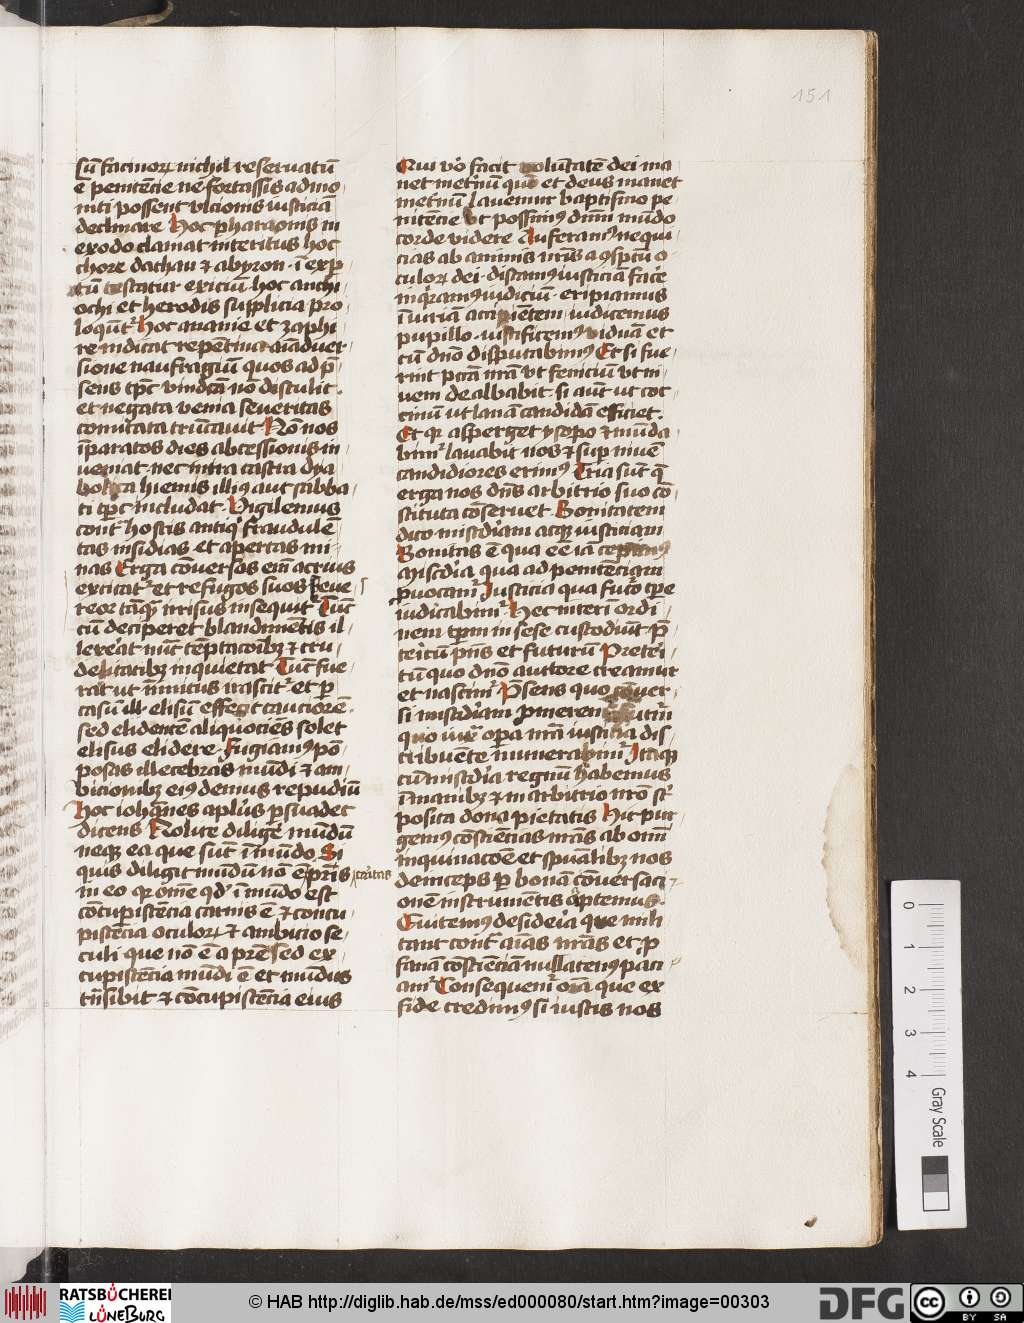 151
sũ facinorꝝ nichil reseruatũ
e penitẽcie ne fortassis admo
niti possent vlcionis iusticiã
declinare Hoc pharaonis in
exodo clamat interitus hoc
chore dachan et abyron
testatur exiciũ hoc anchi
ochi et herodis supplicia pro
loqũt᷑ hoc ananie et zaphi
re indicat repẽtina aĩaduer
sione naufragiũ quos ad p̃
sens tp̃c vindicã nõ distulit
et negata venia seueritas
comitata triũcauit Nõ nos
ĩparatos dies abcessionis in
ueniat nec intra castra dya
bolica hiemis illius aut sabba
ti tp̃c includat Vigilemus
cont͛ hostis antiqͥ fraudulẽ
tas insidias et apertas mi
nas Erga cõuersos em̃ acrius
excitat᷑ et refugos suos seue
reor tãqᷓ irrisus insequit Tũc
cũ deciperet blandimẽtis il
lexerat nũc tẽptacõibꝫ et cru
delitatibꝫ inquietat Tũc fue
rat ut inimicus irascit᷑ et p̱
casũ ill elisũ effecit cauciorẽ
sed elidentẽ aliquociẽs solet
elisus elidere Fugiamꝰ põ
posas illecebras mũdi et am
bicionibꝫ eiꝰ demus repudiũ
Hoc iohãnes apl̃us p̱suadet
dicens Nolite diligẽ mũdũ
neqꝫ ea que sũt ĩ mũdo Si
quis diligit mũdũ nõ ẽ p̃ris caritas
in eo qꝛ om̃e qd̛ ĩ mũdo est
cõcupistẽcia carnis ẽ et concu
pistẽcia oculoꝝ et ambicio se
culi que nõ ẽ a pr̃e sed ex
cupistẽcia mũdi ẽ et mũdus
trãsibit et cõcupistẽcia eius
Qui vo̾ facit volũtatẽ dei ma
net met̾nũ quo et deus manet
met̾nũ Lauemur baptismo pe
nitẽcie vt possimꝰ dn̄m mũdo
corde videre Auferamꝰ nequi
cias ab animis nr̃is a ꝯspc̃u o
culoꝝ dei discamꝰ iusticiã face
inq̾ramꝰ iudiciũ eripiamus
ĩiuriã accipiẽtem iudicemus
pupillo iustificemꝰ viduã et
cũ dn̄o disputabimꝰ Et si fue
rint pcc̃a nr̃a vt feniciũ vt ni
uem dealbabit si aũt ut coc
cinũ ut lanã candidã efficiet
Et qꝛ asperget ysopo et mũda
bim᷑ lauabit nos et sup̱ niuẽ
candidiores erimꝰ Tria sũt q̃
erga nos dn̄s arbitrio suo cõ
stituta cõseruet Bonitatem
dico misc̃diam atqꝫ iusticiam
Bonitas ẽ qua
Misc̃dia qua ad penitẽciam
ꝓuocam᷑ Justicia qua futo᷑ tp̃e
iudicabim᷑ Hec interĩ ordi
nem tp̱m in sese custodiũt p̃
te̾itũ p̃ns et futurũ Prete̾i
tũ quo dn̄o auctore creamur
et nascim᷑ P̃sens quo conuer
si misc̃diam ꝓmeren
quo iux̃ op̱a nr̃a iusticia dis
tribuente munerabim᷑ Itaqꝫ
cũ misc̃dia regnũ habemus
ĩ manibꝫ et in arbitrio nr̃o st᷑
posita dona pietatis Hic pur
gemꝰ cõsciencias nr̃as ab om̃i
inquinacõe et sp̃ualibꝫ nos
deinceps p̱ bonã cõuersaci
onẽ instrumẽtis aptemus
Euitemꝰ deside̾ia que mili
tant cont͛ aĩas nr̃as et ꝓ
fanã cõsciẽciã nullatenꝰ paci
am᷑ Consequem᷑ om̃a que ex
fide credimꝰ si iustis nos
0 1 2 3 4
Gray Scale
RATSBÜCHEREI
LÜNEBURG
© HAB http://diglib.hab.de/mss/ed000080/start.htm?image=00303
DFG
cc
BY SA